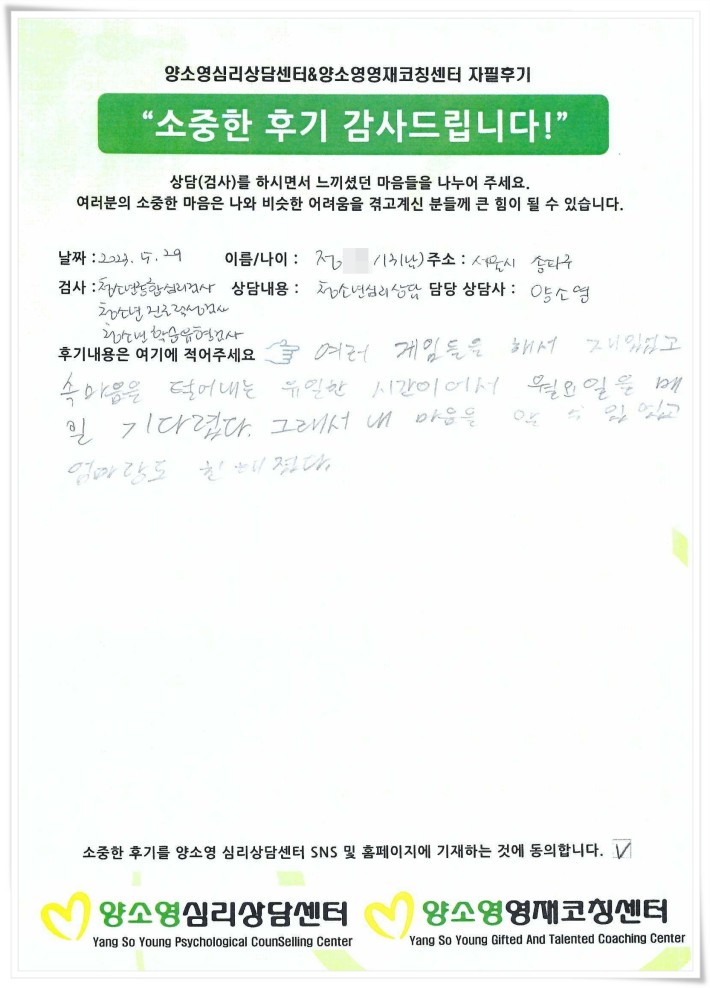 양소영심리상담센터&양소영영재코칭센터 자필후기
“소중한 후기 감사드립니다!”
상담(검사)를 하시면서 느끼셨던 마음들을 나누어 주세요.
여러분의 소중한 마음은 나와 비슷한 어려움을 겪고계신 분들께 큰 힘이 될 수 있습니다.
날짜 : 2023. 5. 29 이름/나이 : 정 /13(남) 주소 : 서울시 송파구
검사 : 청소년종합심리검사 상담내용 : 청소년심리상담 담당 상담사 : 양소영
청소년 진로적성검사
청소년 학습유형검사
후기내용은 여기에 적어주세요 여러 게임들을 해서 재밌었고
속마음을 털어내는 유일한 시간이어서 월요일을 매
일 기다렸다. 그래서 내 마음을 알 수 있었고
엄마랑도 친해졌다.
소중한 후기를 양소영 심리상담센터 SNS 및 홈페이지에 기재하는 것에 동의합니다. V
양소영심리상담센터 양소영영재코칭센터
Yang So Young Psychological CounSelling Center Yang So Young Gifted And Talented Coaching Center